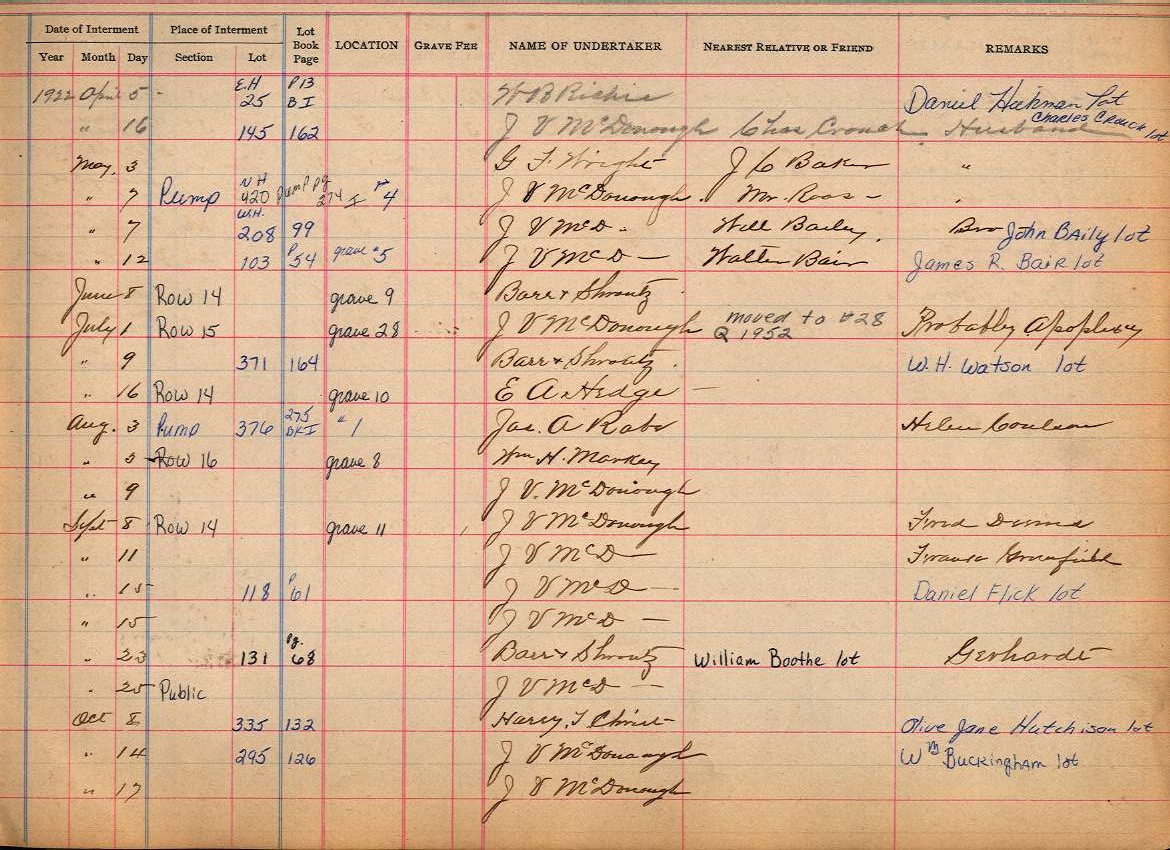 Date of Interment Place of Interment Lot Book Page LOCATION GRAVE FEE NAME OF UNDERTAKER NEAREST RELATIVE OR FRIEND REMARKS
Year Month Day Section Lot
1922 April 5 - E.H 25 P 13 B I W B Richie Daniel Hokman lot
" 16 145 162 J V McDonough Chas Crouch Husband Charles Crouch lot
May. 3 G F. Wright J C Baker "
" 7 Pump N H 420 Pump pg 274 I # 4 J V McDonough. Mr. Roas - "
" 7 W.H. 208 99 J V McD " Will Bailey. Bro John Baily lot
" 12 103 P 54 grave #5 J V McD — Walter Bair James R. Bair lot
June 8 Row 14 grave 9 Barr & Shroutz
July 1 Row 15 grave 28 J V McDonough moved to #28 Q 1952 Probably Apoplexy
" 9 371 164 Barr & Shroutz. W.H. Watson lot
" 16 Row 14 grave 10 E A. Hedge —
Aug. 3 Pump 376 275 BK I " 1 Jas. A Rabe Helen Coulson
" 5 Row 16 grave 8 Wm H. Markey
" 9 J V. McDonough
Sept 8 Row 14 grave 11 J V McDonough Fred
" 11 J V McD — Greenfield
" 15 118 P 61 J V McD — Daniel Flick lot
" 15 J V McD —
" 23 131 Pg. 68 Barr & Shroutz William Boothe lot Gerhardt
" 25 Public J V McD —
Oct 8 335 132 Harry T Christ Olive Jane Hutchison lot
" 14 295 126 J V McDonough Wm Buckingham lot
" 17 J V McDonough